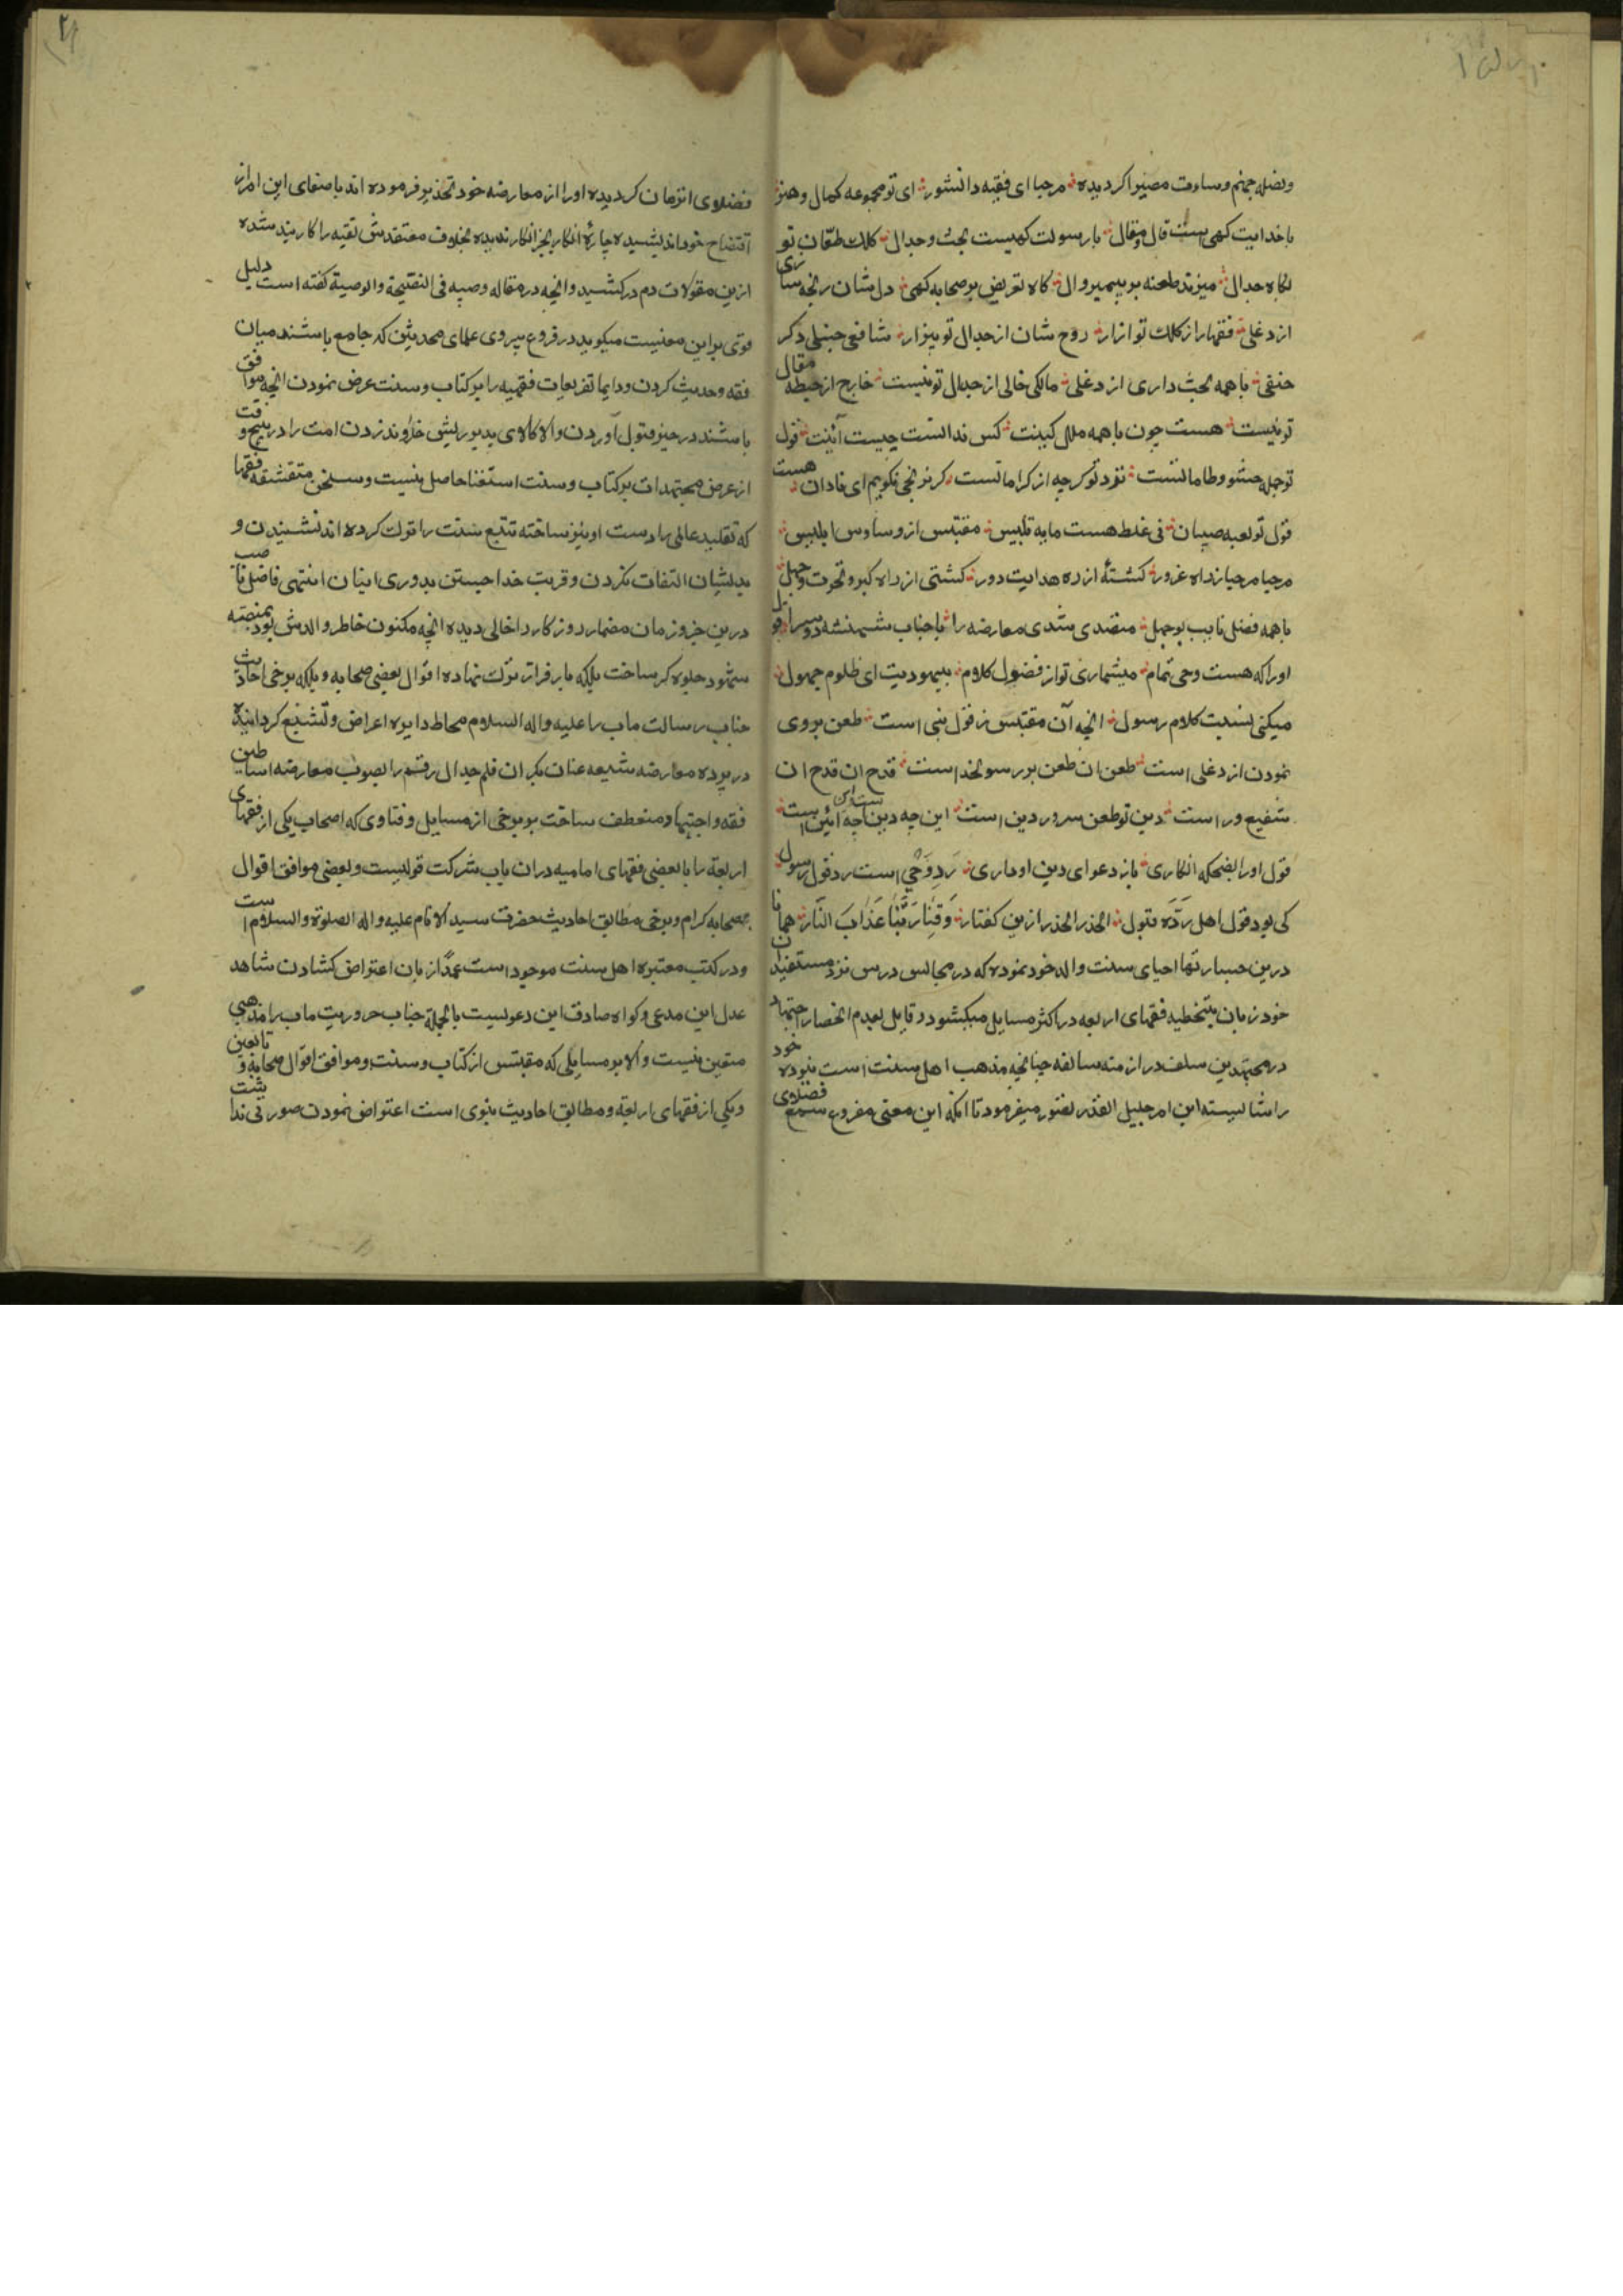 ونصله جهنم وساءت مصیرا کردیده مرحبا ای فقیه دانشور ای تو مجموعه کمال وهنر
با خدایت کهی ست قال ومقال با رسولت کهیست بحث وجدال کلک طعّان تو
بکاه جدال میزند طعنه بر پیمبر وال کاه تعریض بر صحابه کهی دل شان رنجه سازی
از دغلی فقها را از کلک تو ازار روح شان از جدال تو بیزار شافعی حنبلی دکر
حنفی با همه بحث داری از دغلی مالکی خالی از جدال تو نیست خارج از حیطه مقال
تو نیست هست چون با همه ملل کینت کس ندانست چیست آئینت قول
تو جمله حشو وطاماتست نزد تو کرچه از کراماتست کر نرنجی بکویم ای نادان هست
قول تو لعبه صبیان نی غلط هست مایه تلبیس مقتبس از وساوس ابلیس
مرحبا مرحبا زداه غرور کشتهٔ از ره هدایت دور کشتی از راه کبر ونخوت وجهل
با همه فضل نایب بوجهل متصدی شدی معارضه را با جناب شهنشه دو سرا قول
اورا که هست وحی تمام میشماری تو از فضول کلام بیهودیت ای ظلوم جهول
میکنی نسبت کلام رسول انچه آن مقتبس ز قول نبی است طعن بروی
نمودن از دغلی است طعن ان طعن بر رسولخداست قدح ان قدح ان
شفیع وراست دین تو طعن سرور دین است این چه دین است این چه ائین است
قول اورا بضحکه انکاری باز دعوای دین او داری رَدِ وَحْی است رد قول رسول
کی بود قول اهل رَدَّه قبول الحذر الحذر ازین کفتار وَقِنٰا رَبَّنٰا عَذٰابَ النّٰار همانا
درین جسارتها احیای سنت والد خود نموده که در مجالس درس نزد مستفیدان
خود زبان بتخطیه فقهای اربعه در اکثر مسایل میکشود و قایل بعدم انحصار اجتهاد
در مجتهدین سلف در ازمنه سالفه چنانچه مذهب اهل سنت است بنوده خود
را شایسته این امر جلیل القدر تصور میفرمود تا انکه این معنی مقروع سمع فضلای
فضلای انزمان کردیده اورا از معارضه خود تحذیر فرموده اند باصغای این امر از
افتضاح خود اندیشیده چارهٔ انکار بجز انکار ندیده بخلاف معتقدش تقیه را کاربند شده
ازین مقولات دم درکشید وانچه در مقاله وصیه فی النصیحة والوصیة کفته است دلیل
قوی براین معنیست میکوید در فروع پیروی علمای محدثین که جامع باشند میان
فقه وحدیث کردن ودایما تفریعات فقهیه را بر کتاب وسنت عرض نمودن انچه موافق
باشند در حیز قبول آوردن والا کالای بد بریش خاوند زدن امت را در هیچ وقت
از عرض مجتهدات بر کتاب وسنت استغنا حاصل نیست وسخن متقشفه فقها
که تقلید عالمی را دست اویز ساخته تتبع سنت را ترک کرده اند نشنیدن و
بدیشان التفات نکردن وقربت خدا جستن بدوری اینان انتهی فاضل ناصب
درین جزو زمان مضمار روزکار را خالی دیده انچه مکنون خاطر والدش بود بمنصه
شهود جلوه کر ساخت بلکه پا بر فراتر نهاده اقوال بعضی صحابه وبلکه برخی احادیث
جناب رسالت ماب را علیه واله السلام محاط دایره اعراض وتشنیع کردانیده
در پرده معارضه شیعه عنان یکران قلم جدال رقم را بصوب معارضه اساطین
فقه واجتهاد منعطف ساخت بر برخی از مسایل وفتاوی که اصحاب یکی از فقهای
اربعه را با بعضی فقهای امامیه دران باب شرکت قولیست وبعضی موافق اقوال
صحابه کرام وبرخی مطابق احادیث حضرت سید الانام علیه واله الصلوة والسلام است
ودر کتب معتبره اهل سنت موجود است عمداً زبان اعتراض کشادن شاهد
عدل این مدعی وکواه صادق این دعویست بالجملة جناب حروریت ماب را مذهبی
متعین نیست والا بر مسایلی که مقتبس از کتاب وسنت وموافق اقوال صحابه و تابعین
ویکی از فقهای اربعة ومطابق احادیث نبوی است اعتراض نمودن صورتی نداشت